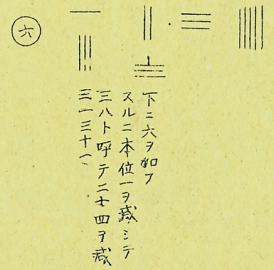 六
下ニ六ヲ加フ
スルニ本位一ヲ減シテ
三ハト呼テ二七四ヲ減
三一三十一